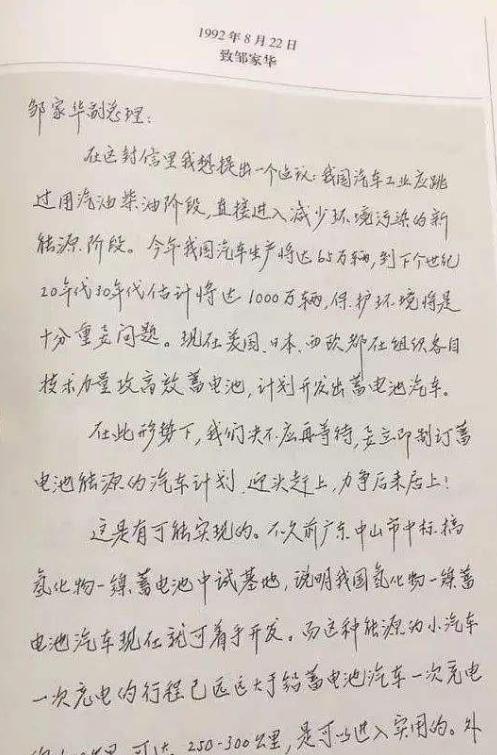 1992年8月22日
致邹家华
邹家华副总理：
在这封信里我想提出一个建议：我国汽车工业应跳
过用汽油柴油阶段，直接进入减少环境污染的新
能源阶段。今年我国汽车生产将达65万辆，到下个世纪
20年代30年代估计将达1000万辆，保护环境将是
十分重要问题。现在美国、日本、西欧都在组织各自
技术力量攻高效蓄电池，计划开发出蓄电池汽车。
在此形势下，我们决不应再等待，要立即制订蓄
电池能源的汽车计划，迎头赶上，力争后来居上！
这是有可能实现的。不久前广东中山市中标搞
氢化物—镍蓄电池中试基地，说明我国氢化物—镍蓄
电池汽车现在就可着手开发。而这种能源的小汽车
一次充电的行程已远远大于铅蓄电池汽车一次充电
公里，可达 250-300公里，是可以进入实用的。外